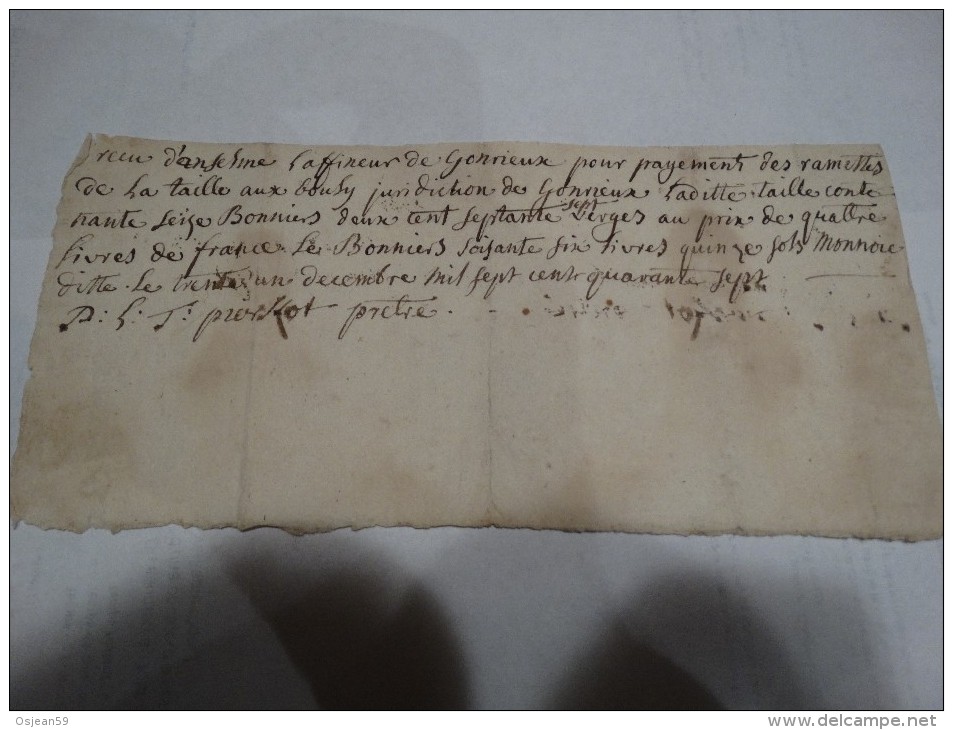 recu d'anselme Laffineur de Gonrieux pour payement des ramilles
de La taille aux bouly juridiction de Gonrieux Laditte taille conte
nante seize Bonniers deux cent septante sept verges au prix de quattre
livres de france Le Bonniers soisante six livres quinze sols Monnoie
ditte . Le trente un decembre mil sept cent quarante sept
P: L: J: pierlot pretre .
Osjean59
www.delcampe.net